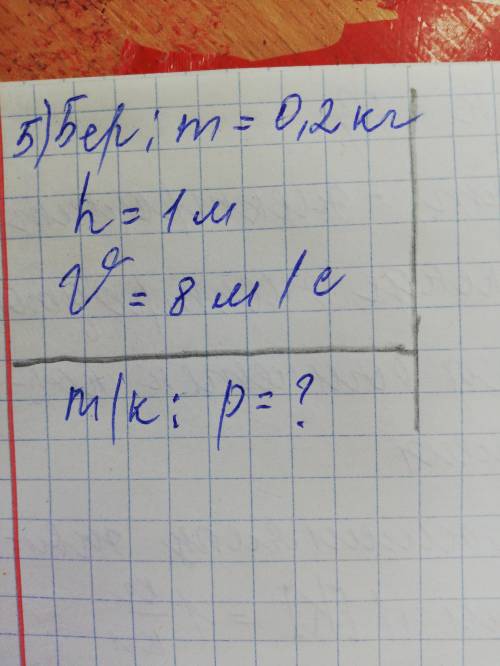 5) Бер; m = 0,2 кг
h = 1 м
V = 8 м/с
т/к: p = ?